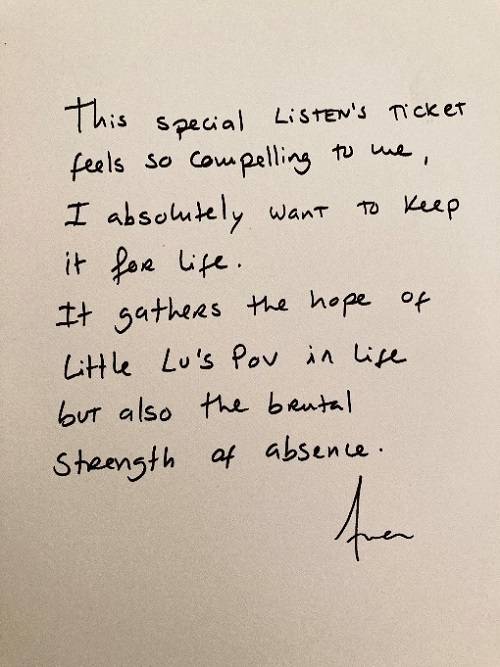 This special LiSTEN's TickET
feels so compelling to me,
I absolutely want to keep
it for life.
It gathers the hope of
Little Lu's Pov in life
but also the brutal
Strength of absence.